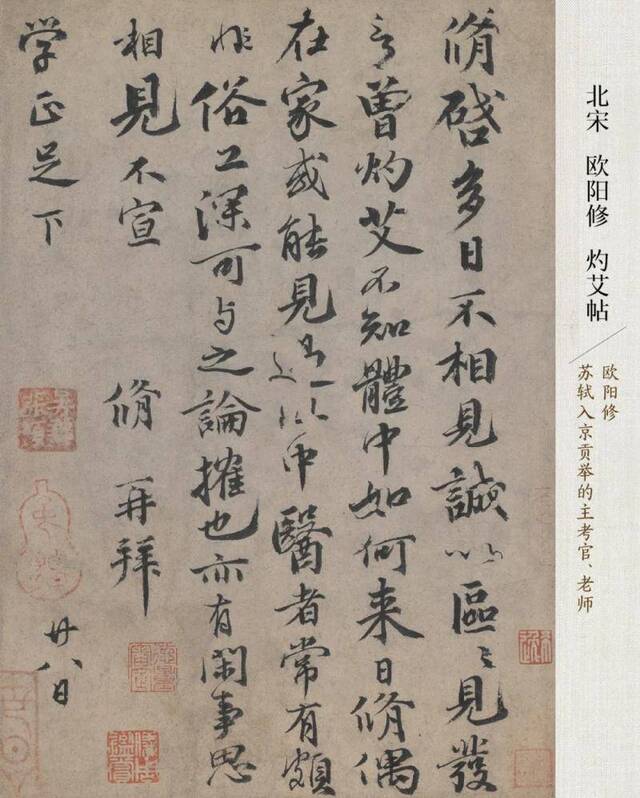 脩啓多日不相見誠以區〻見發
言曾灼艾不知體中如何来日脩偶
在家或能見過此中醫者常有頗
非俗工深可与之論搉也亦有閑事思
相見不宣
脩再拜
学正足下
廿八日
北宋 欧阳修 灼艾帖
欧阳修
苏轼入京贡举的主考官、老师